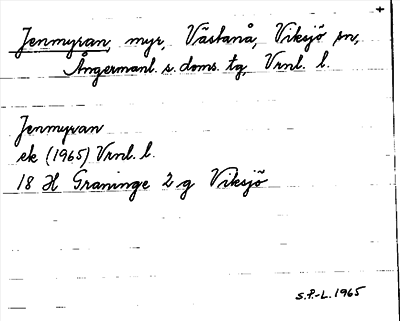 +
Jenmyran, myr, Västanå, Viksjö sn,
Ångermanl. s. doms. tg, Vrnl. l.
Jenmyran
ek (1965) Vrnl. l.
18 H Graninge 2 g Viksjö
S.P.-L. 1965